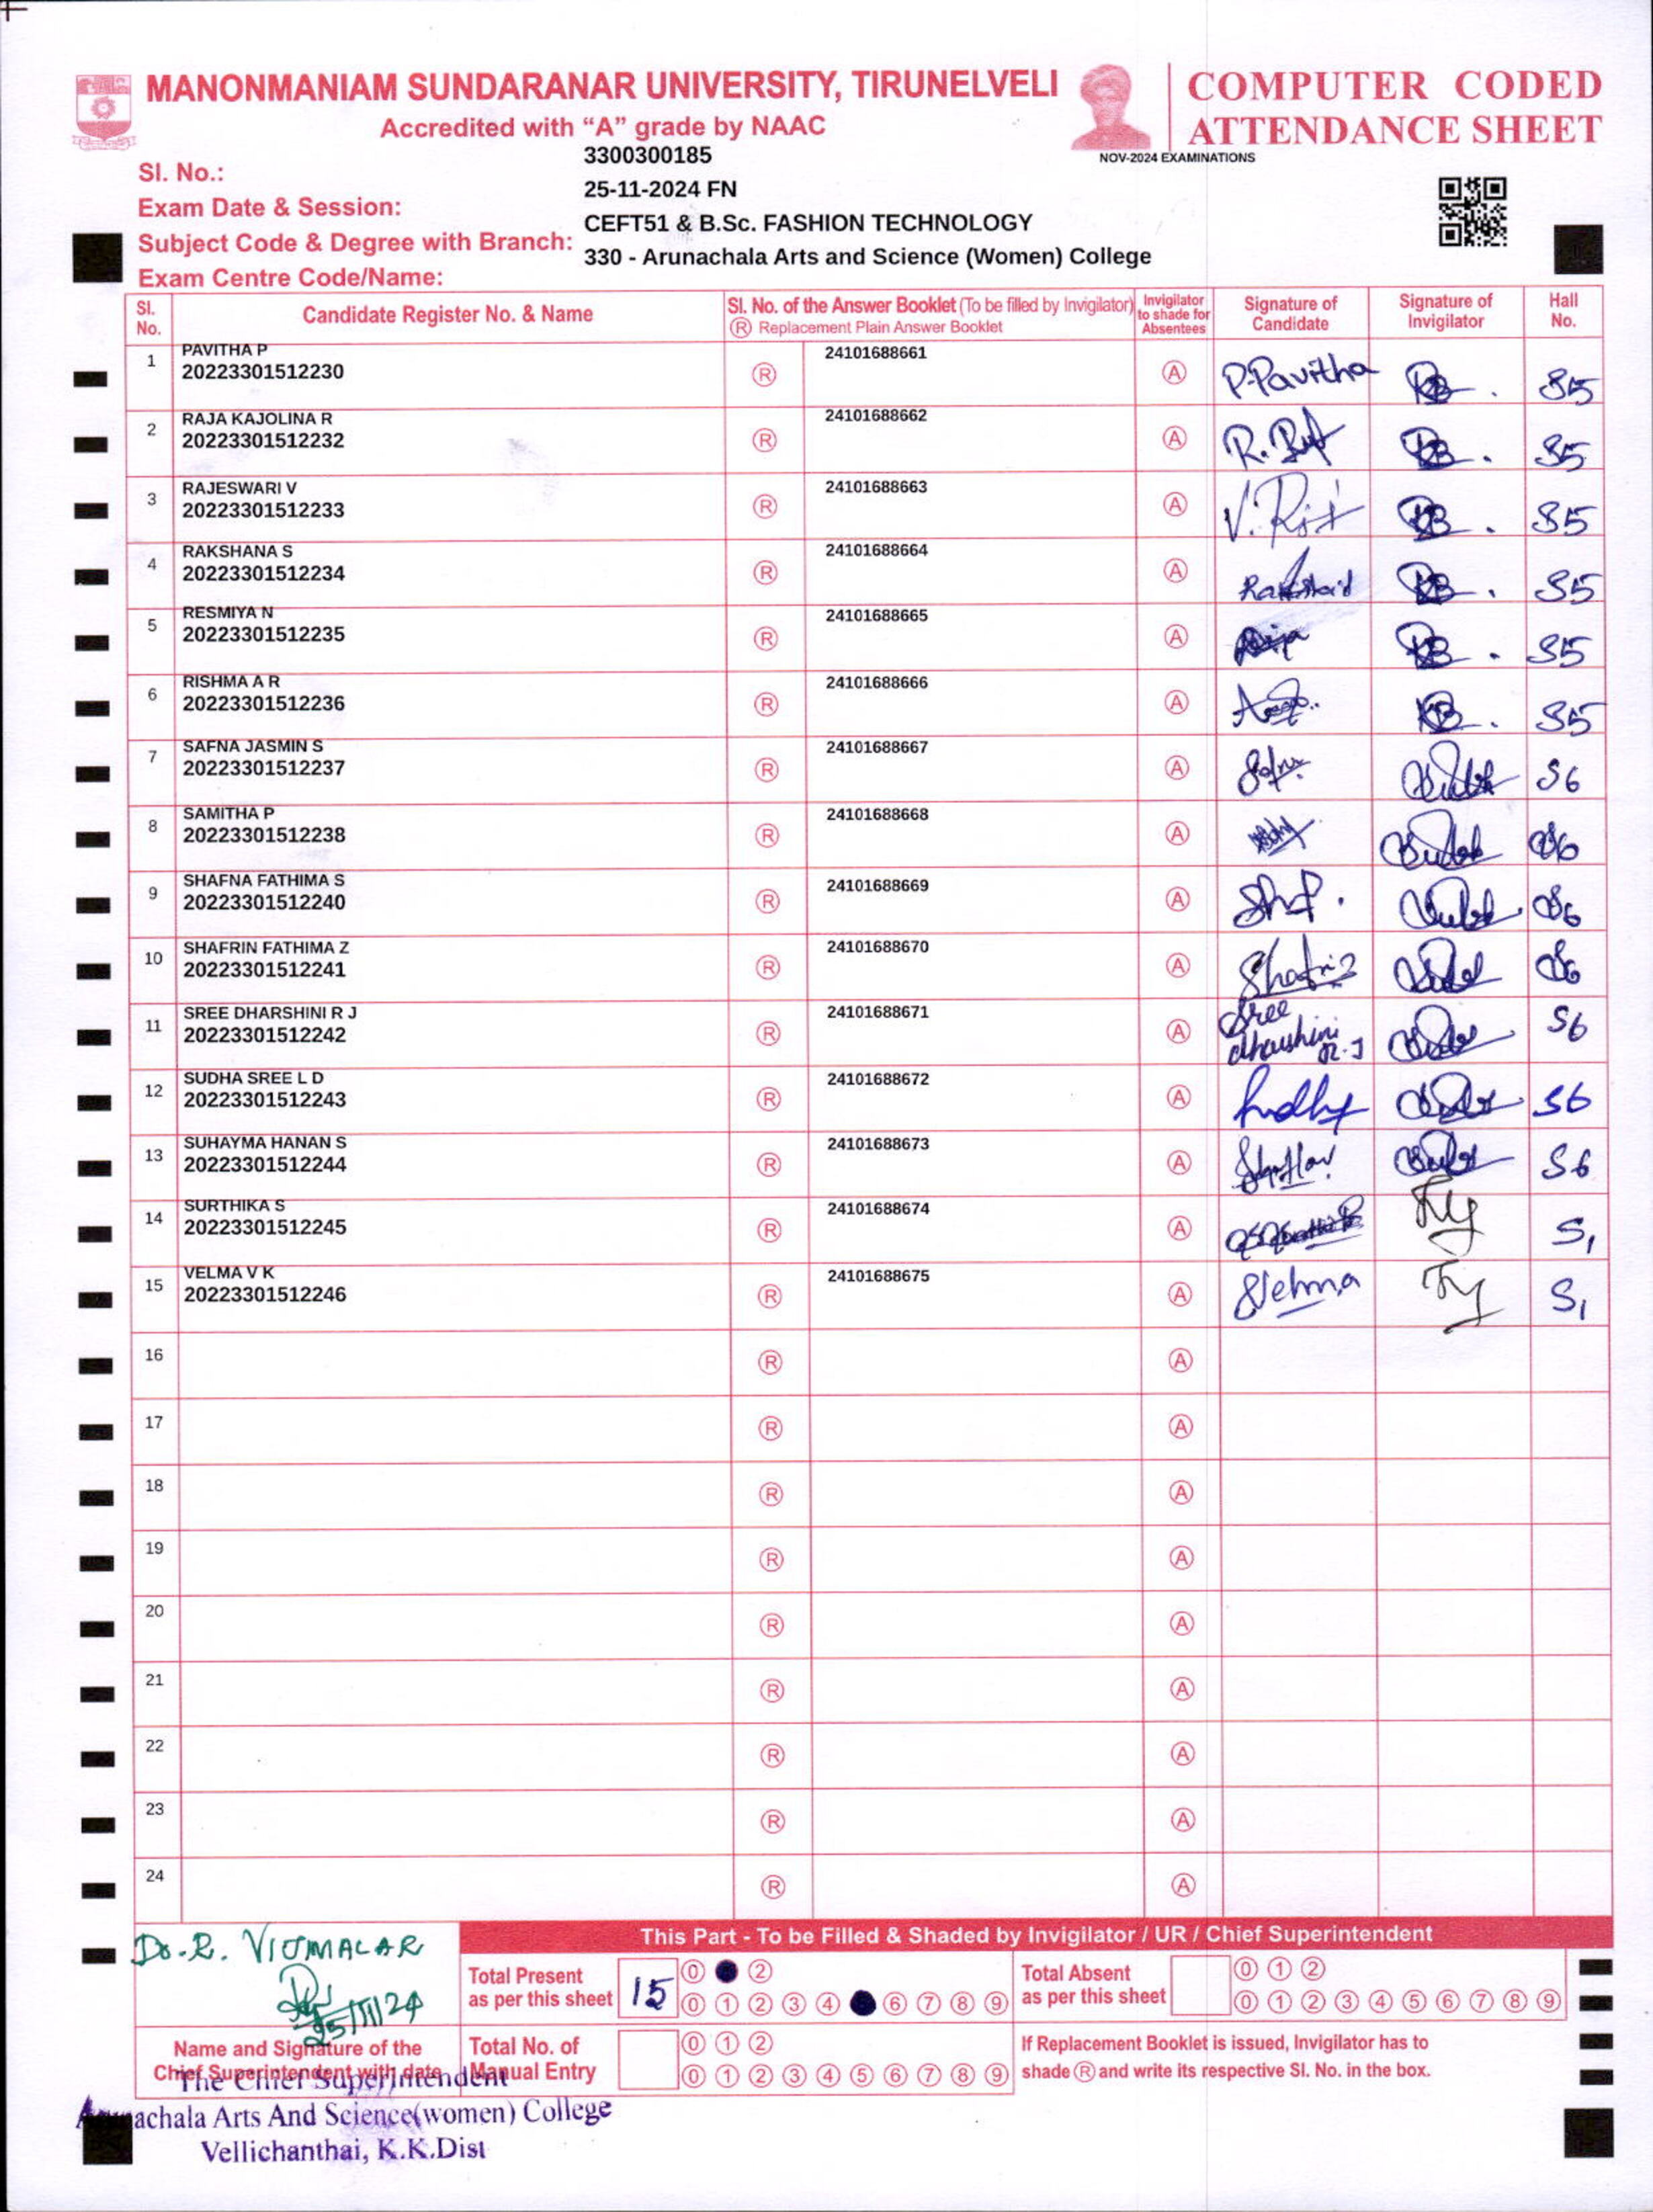 MANONMANIAM SUNDARANAR UNIVERSITY, TIRUNELVELI
Accredited with “A” grade by NAAC
COMPUTER CODED
ATTENDANCE SHEET
NOV-2024 EXAMINATIONS
Sl. No.: 3300300185
Exam Date & Session: 25-11-2024 FN
Subject Code & Degree with Branch: CEFT51 & B.Sc. FASHION TECHNOLOGY
Exam Centre Code/Name: 330 - Arunachala Arts and Science (Women) College
Sl. No. Candidate Register No. & Name Sl. No. of the Answer Booklet (To be filled by Invigilator) Ⓡ Replacement Plain Answer Booklet Invigilator to shade for Absentees Signature of Candidate Signature of Invigilator Hall No.
1 PAVITHA P 24101688661
20223301512230 Ⓡ Ⓐ P.Pavitha S5
2 RAJA KAJOLINA R 24101688662
20223301512232 Ⓡ Ⓐ S5
3 RAJESWARI V 24101688663
20223301512233 Ⓡ Ⓐ S5
4 RAKSHANA S 24101688664
20223301512234 Ⓡ Ⓐ S5
5 RESMIYA N 24101688665
20223301512235 Ⓡ Ⓐ S5
6 RISHMA A R 24101688666
20223301512236 Ⓡ Ⓐ S5
7 SAFNA JASMIN S 24101688667
20223301512237 Ⓡ Ⓐ S6
8 SAMITHA P 24101688668
20223301512238 Ⓡ Ⓐ S6
9 SHAFNA FATHIMA S 24101688669
20223301512240 Ⓡ Ⓐ S6
10 SHAFRIN FATHIMA Z 24101688670
20223301512241 Ⓡ Ⓐ S6
11 SREE DHARSHINI R J 24101688671
20223301512242 Ⓡ Ⓐ Sree dharshini R.J S6
12 SUDHA SREE L D 24101688672
20223301512243 Ⓡ Ⓐ S6
13 SUHAYMA HANAN S 24101688673
20223301512244 Ⓡ Ⓐ S6
14 SURTHIKA S 24101688674
20223301512245 Ⓡ Ⓐ S1
15 VELMA V K 24101688675
20223301512246 Ⓡ Ⓐ Velma S1
16 Ⓡ Ⓐ
17 Ⓡ Ⓐ
18 Ⓡ Ⓐ
19 Ⓡ Ⓐ
20 Ⓡ Ⓐ
21 Ⓡ Ⓐ
22 Ⓡ Ⓐ
23 Ⓡ Ⓐ
24 Ⓡ Ⓐ
This Part - To be Filled & Shaded by Invigilator / UR / Chief Superintendent
Dr. R. VIJIMALAR
25/11/24
Name and Signature of the
Chief Superintendent with date
Total Present
as per this sheet
15
0 2
0 1 2 3 4 6 7 8 9
Total Absent
as per this sheet
0 1 2
0 1 2 3 4 5 6 7 8 9
Total No. of
Manual Entry
0 1 2
0 1 2 3 4 5 6 7 8 9
If Replacement Booklet is issued, Invigilator has to
shade Ⓡ and write its respective Sl. No. in the box.
The Chief Superintendent
Arunachala Arts And Science(women) College
Vellichanthai, K.K.Dist